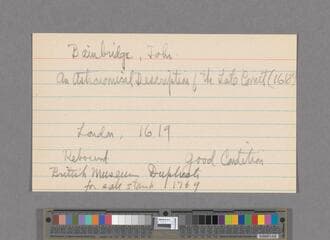 Bainbridge, John
An Astronomical Description of the Late Comet (1618)
London, 1619
Rebound Good Condition
British Museum Duplicate
for sale stamp 1769